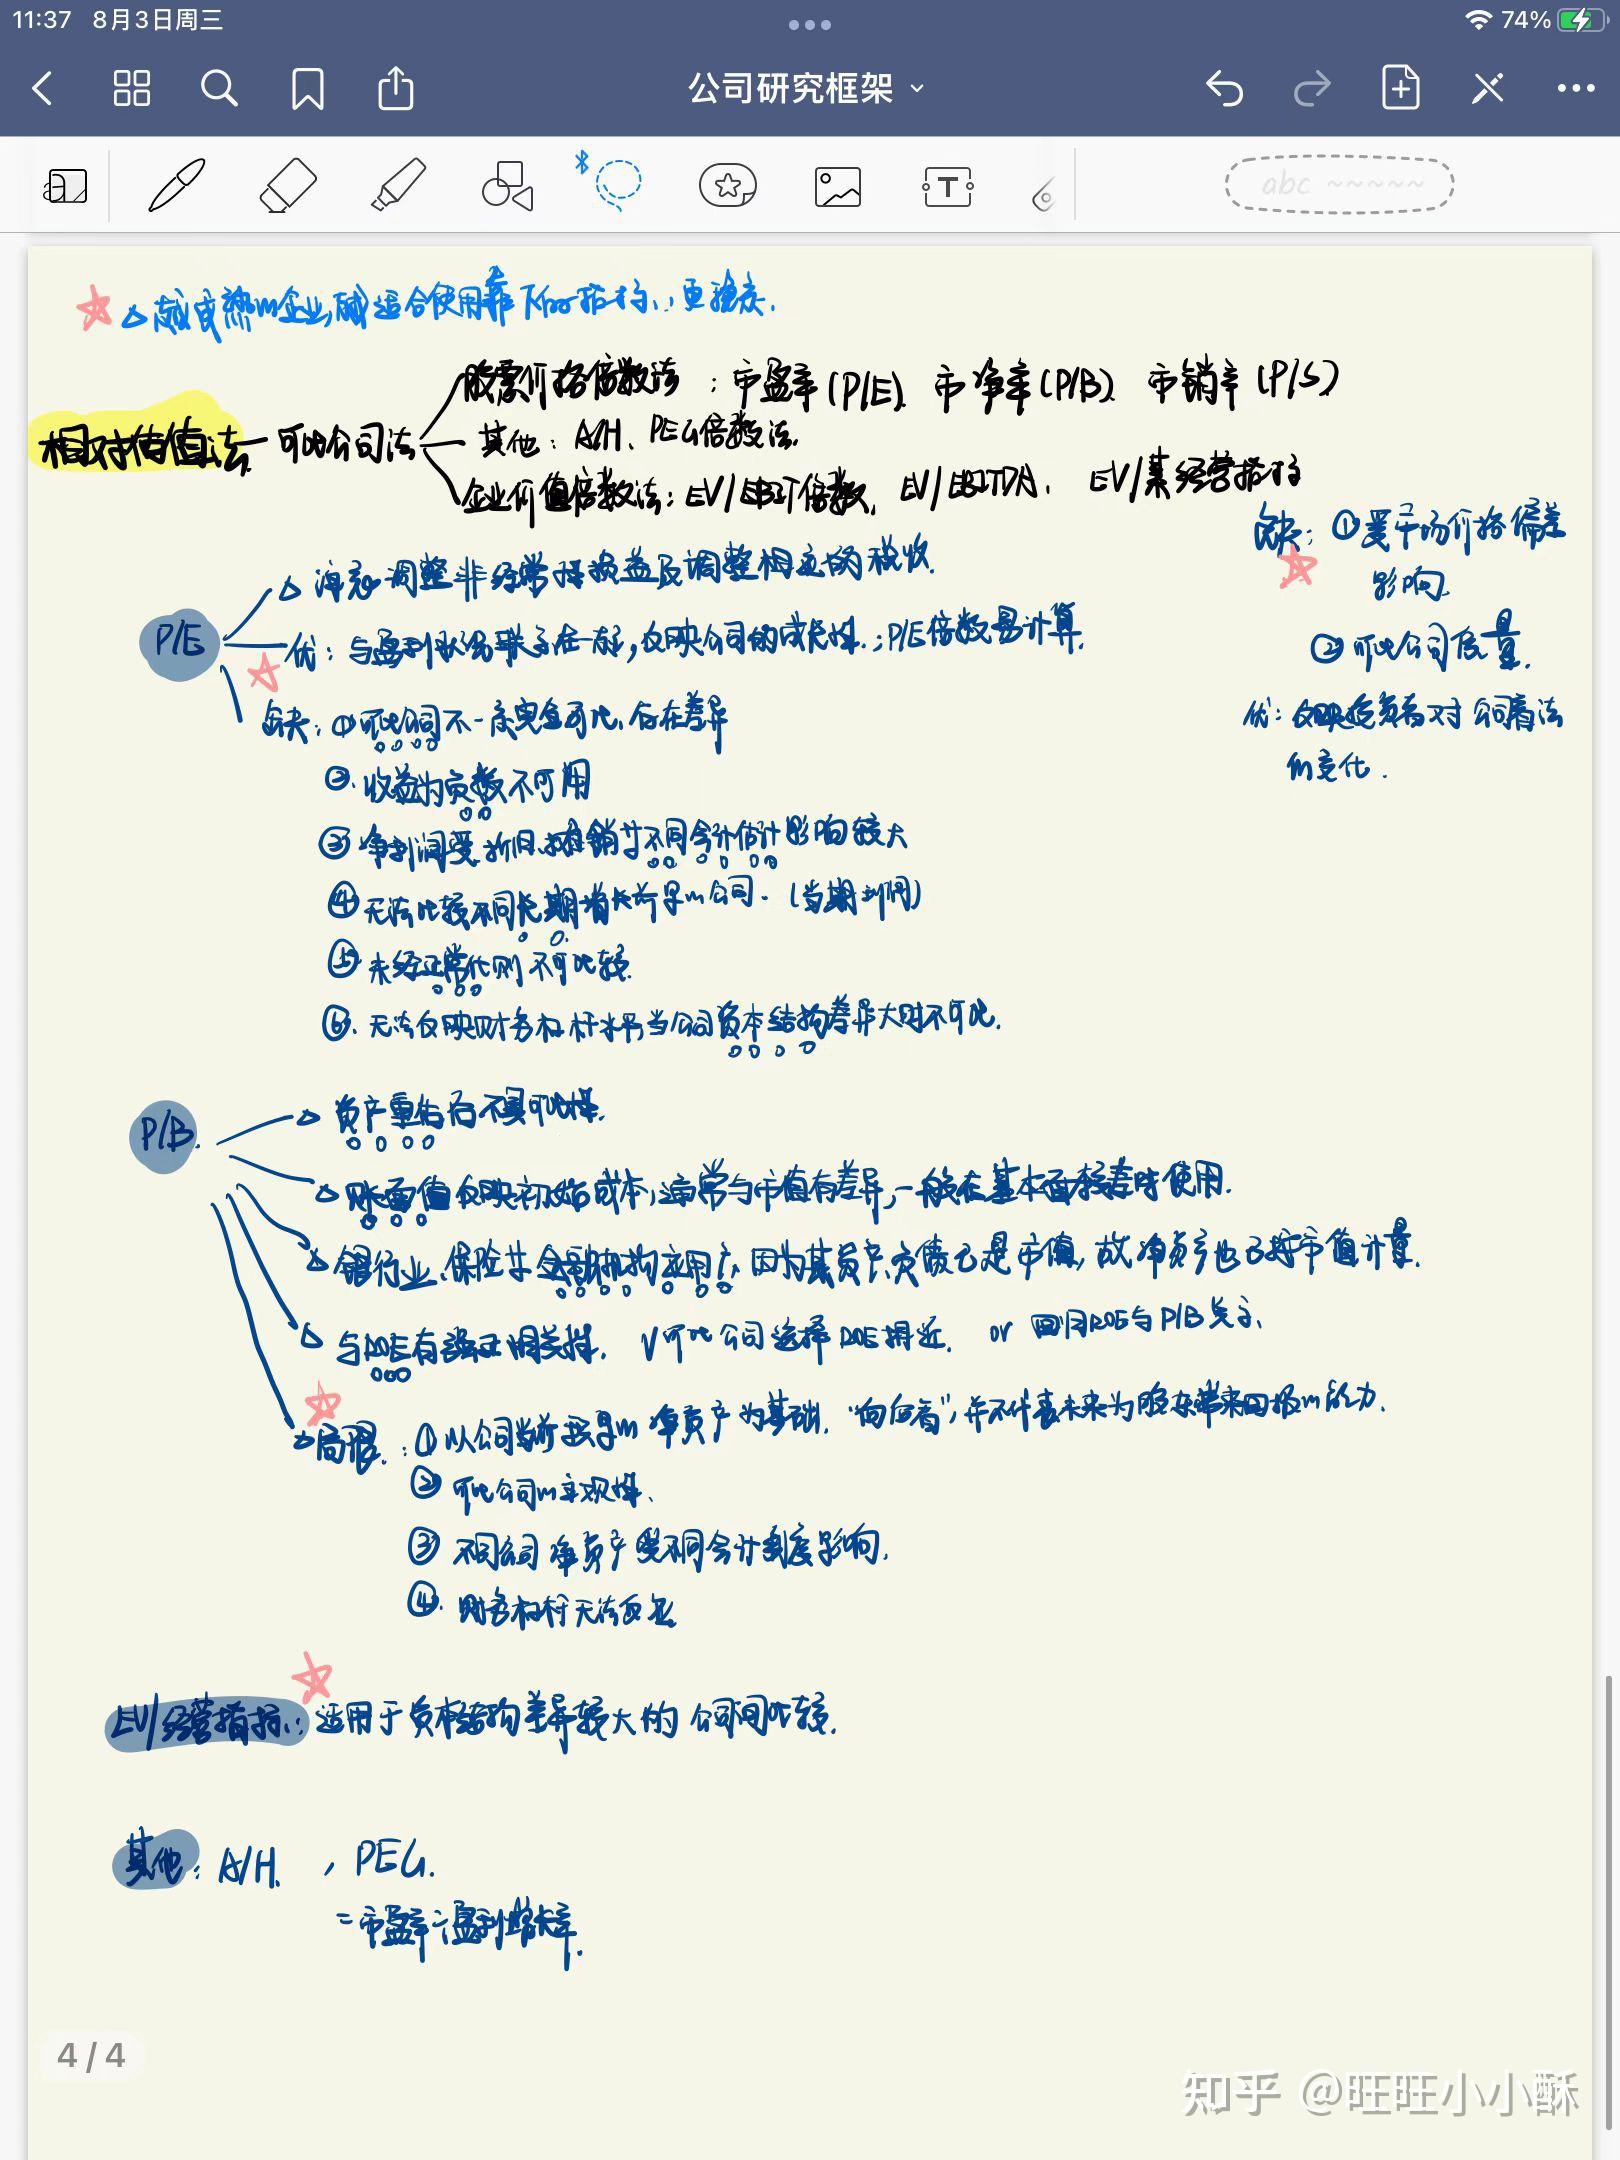 11:37 8月3日周三
74%
公司研究框架
abc
△越成熟的企业,越适合使用靠下的指标,更稳定.
股票价格倍数法:市盈率(P/E).市净率(P/B).市销率(P/S)
相对估值法 — 可比公司法
其他:A/H、PEG倍数法.
企业价值倍数法:EV/EBIT倍数、EV/EBITDA、EV/某经营指标
缺:①受市场价格偏差
影响.
②可比公司质量.
优:反映投资者对公司看法
的变化.
P/E
△注意调整非经常性损益及调整相应的税收.
优:与盈利状况联系在一起,反映公司的成长性.;P/E倍数易计算.
缺:①可比公司不一定完全可比,存在差异
②.收益为负数不可用
③净利润受折旧、摊销等不同会计估计影响较大
④无法比较不同长期增长前景的公司.(当期利润)
⑤未经正常化则不可比较.
⑥.无法反映财务杠杆率,当公司资本结构差异大时不可比.
P/B.
△资产重估后不具可比性.
△账面值反映初始成本,通常与市值有差异,一般在基本面较差时使用.
△银行业、保险等金融机构应用广,因为其资产、负债已是市值,故净资产也已按市值计算.
△与ROE有强正相关性. √可比公司选择ROE相近. or 回归ROE与P/B关系.
△局限.:①以公司当前拥有的净资产为基础."向后看",并不代表未来为股东带来回报的能力.
②可比公司的主观性.
③不同公司净资产受不同会计制度影响.
④.财务杠杆无法反应
EV/经营指标:适用于资本结构差异较大的公司间比较.
其他:A/H. , PEG.
=市盈率÷盈利增长率.
4 / 4
知乎 @旺旺小小酥